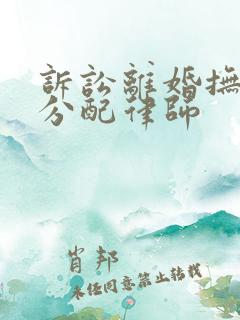 訴訟離婚撫
分配律師
肖邦
未經同意禁止轉載